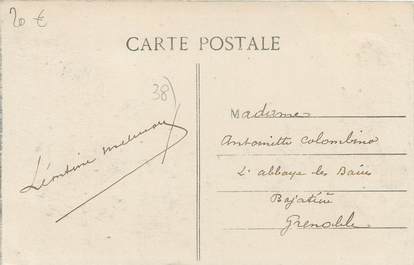 20 €
CARTE POSTALE
38)
Léontine
Madame
Antoinette Colombino
L'abbaye les Bains
Bajatière
Grenoble